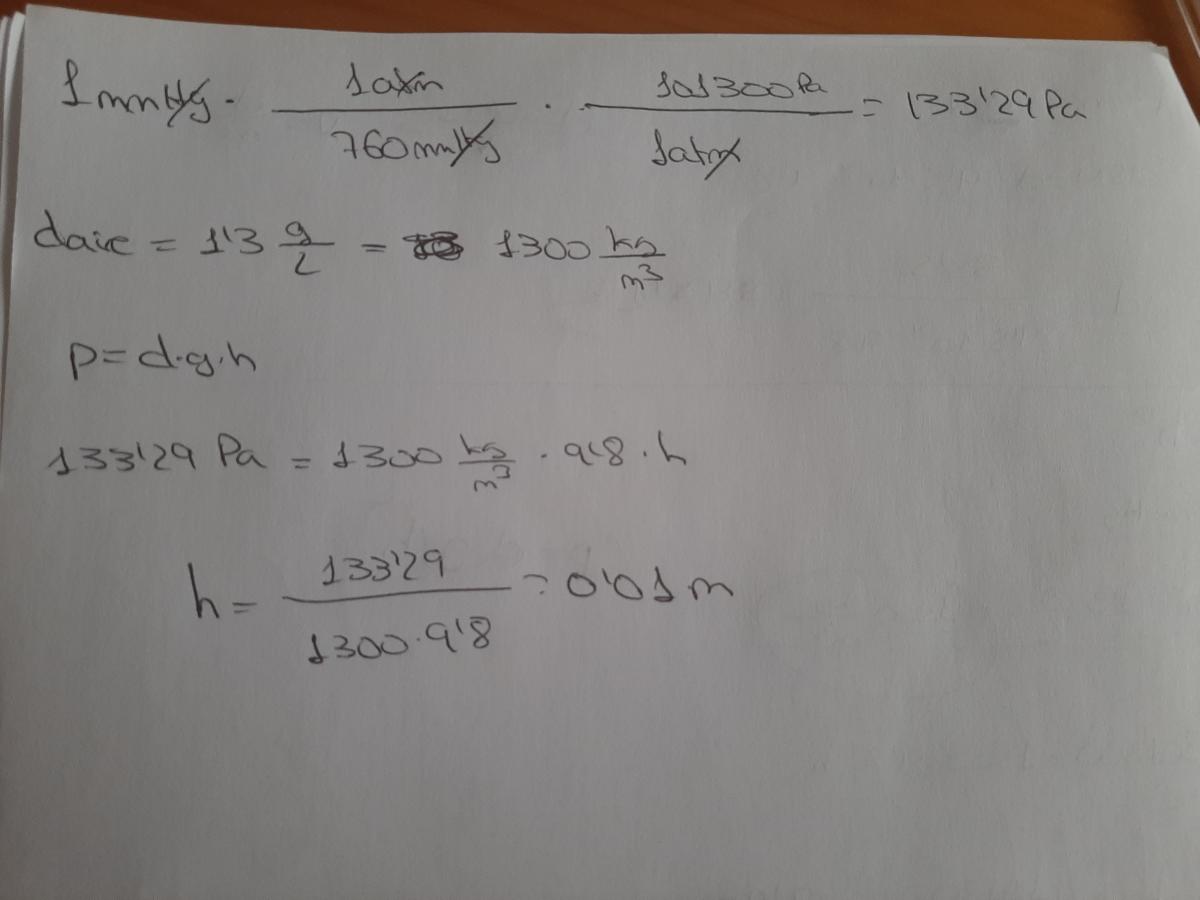 1 mmHg · 1atm / 760mmHg · 101300 Pa / 1atm = 133'29 Pa
daire = 1'3 g/L = 1300 kg/m³
P = d·g·h
133'29 Pa = 1300 kg/m³ · 9'8 · h
h = 133'29 / 1300·9'8 = 0'01 m